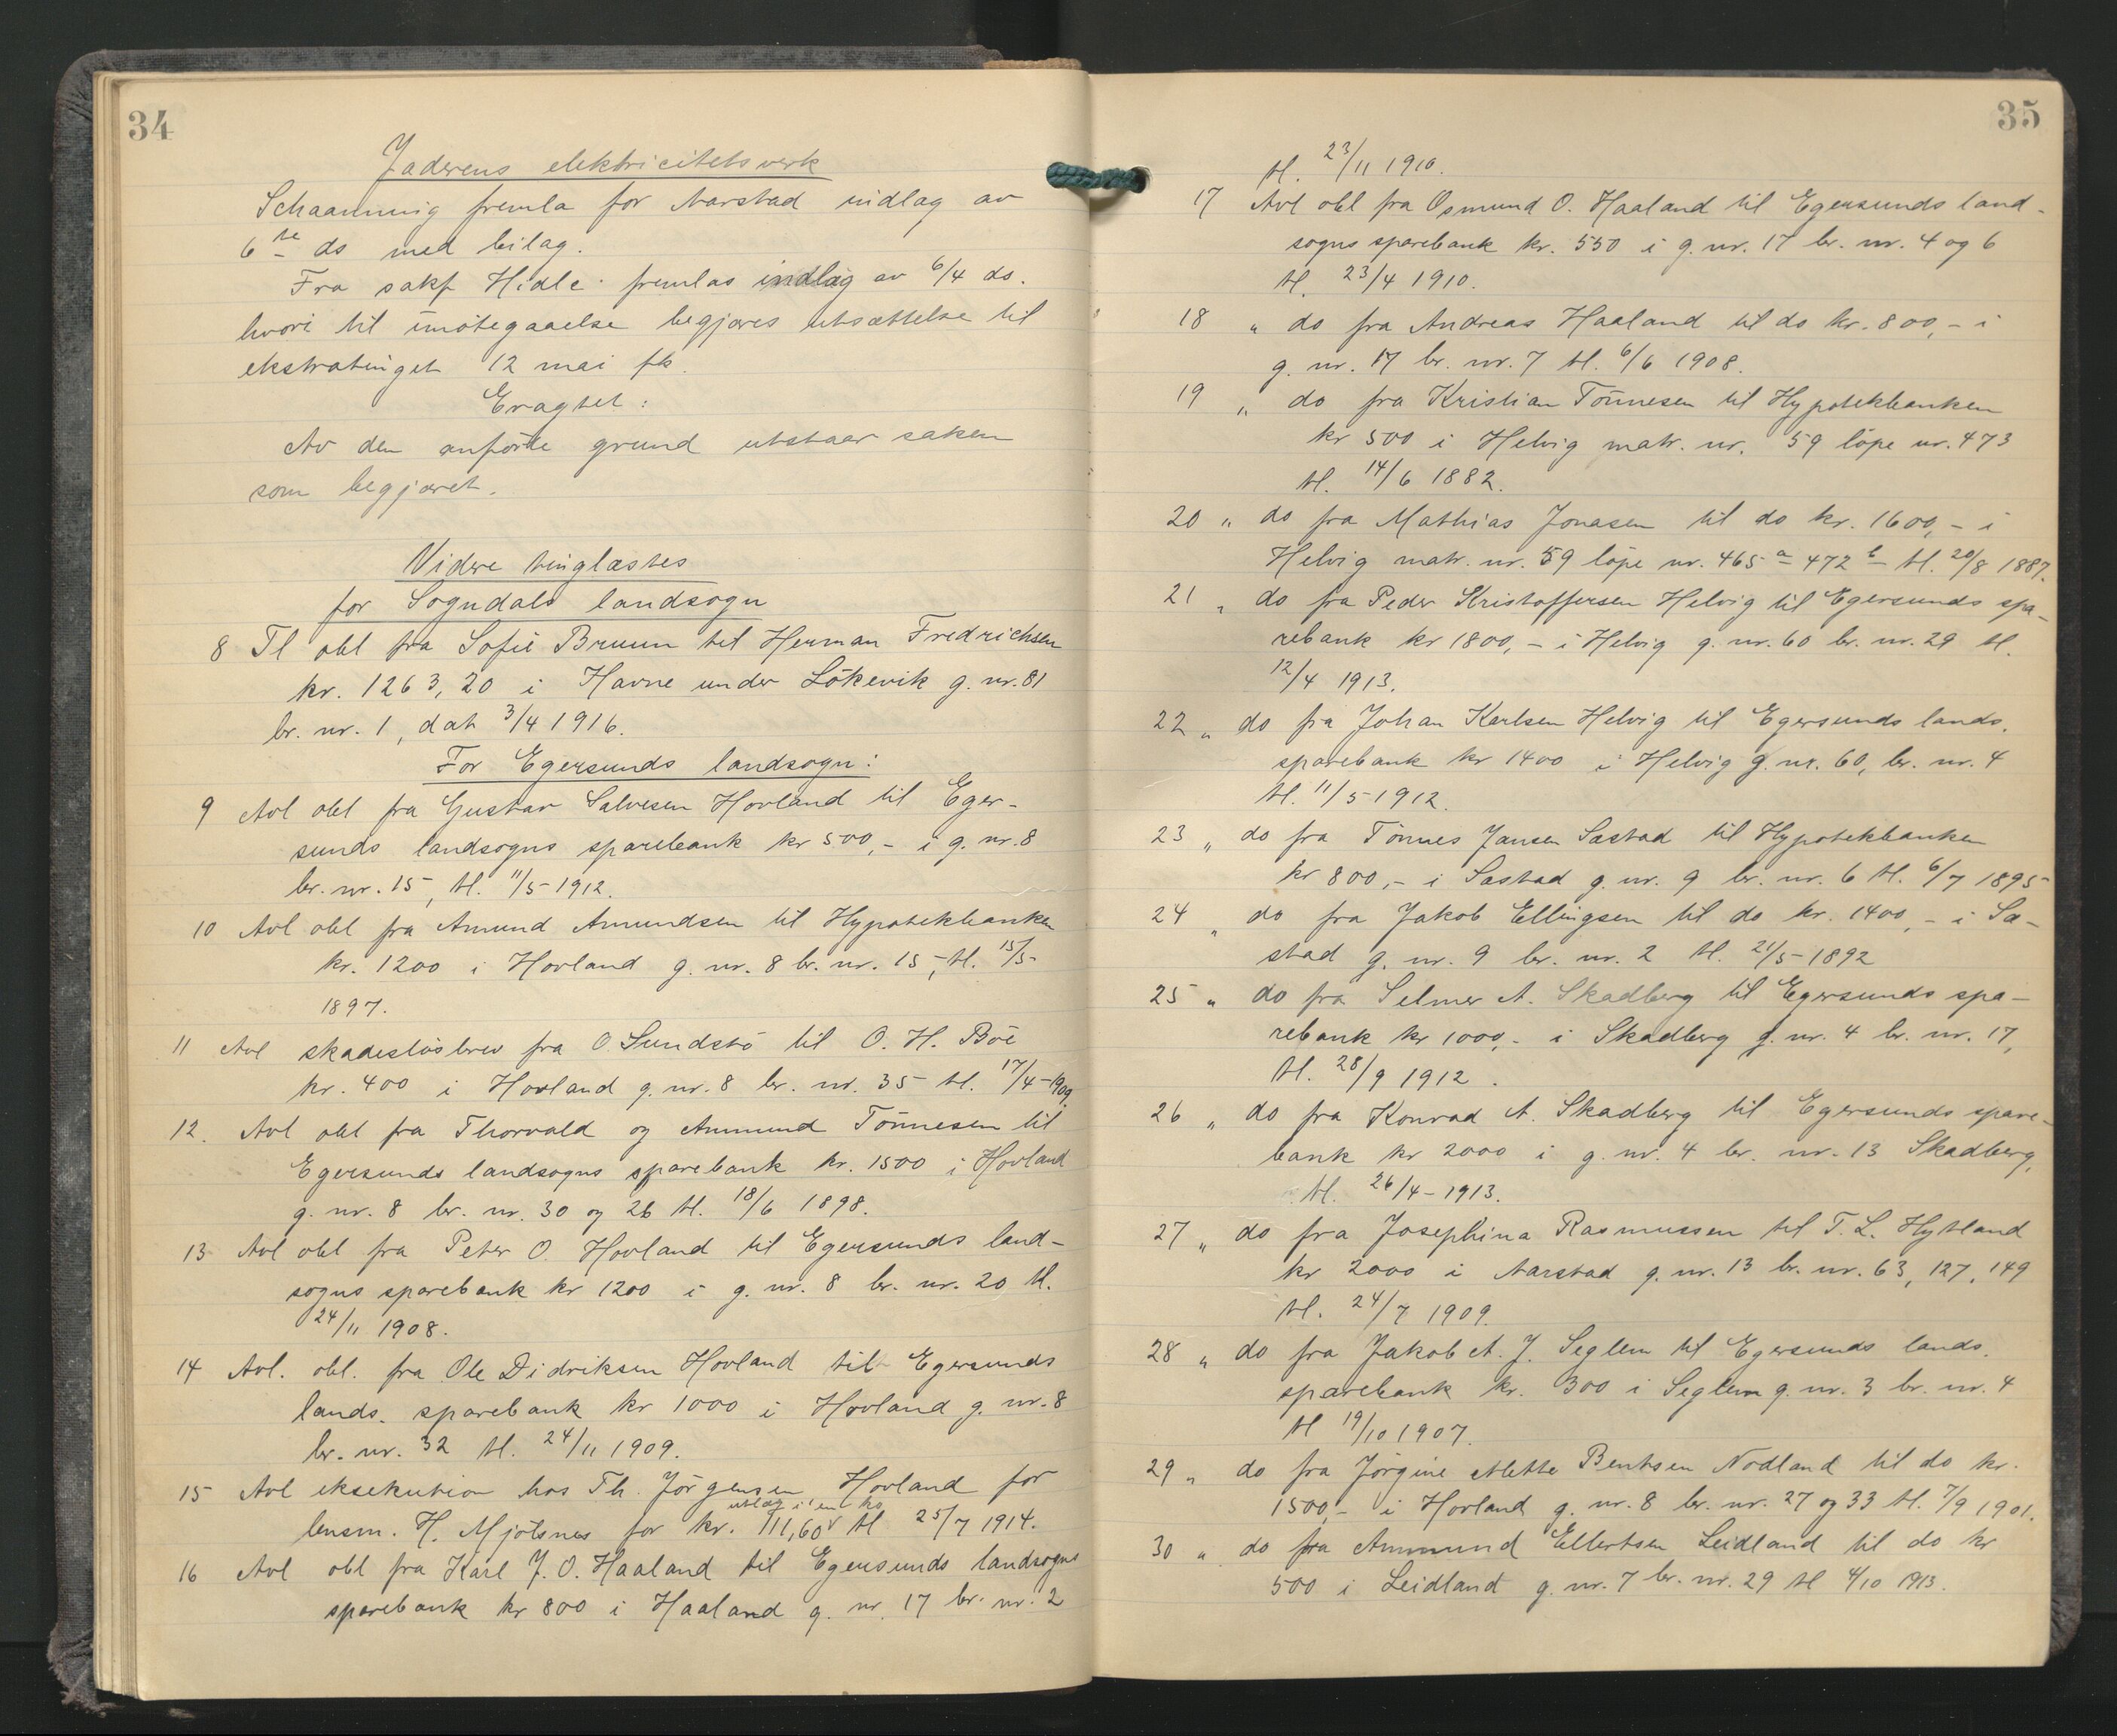 34
Jaderens elektricitetsverk
Schaanning fremla for Aarstad indlag av
6te ds med bilag.
Fra sakf Hidle fremlas indlag av 6/4 ds.
hvori til imøtegaaelse begjæres utsættelse til
ekstratinget 12 mai fk.
Eragtet:
Av den anførte grund utstaar saken
som begjæret.
Videre tinglæstes
for Sogndals landsogn
8 Tl obl fra Sofie Bruun til Herman Fredrichsen
kr. 1263,20 i Havne under Løkevik g. nr. 81
br. nr. 1, dat 3/4 1916.
For Egersunds landsogn:
9 Avl obl fra Gustav Salvesen Hovland til Eger-
sunds landsogns sparebank kr 500,- i g. nr. 8
br. nr. 15, tl. 11/5 1912.
10 Avl obl fra Amund Amundsen til Hypotekbanken
kr. 1200 i Hovland g. nr. 8 br. nr. 15, tl. 15/5-
1897.
11 Avl skadesløsbrev fra O. Sundstø til O. H. Bøe
kr. 400 i Hovland g. nr. 8 br. nr. 35 tl. 17/4-1909.
12. Avl obl fra Thorvald og Ammund Tønnesen til
Egersunds landsogns sparebank kr. 1500 i Hovland
g. nr. 8 br. nr. 30 og 26 tl. 18/6 1898.
13 Avl obl fra Peter O. Hovland til Egersunds land-
sogns sparebank kr 1200 i g. nr. 8 br. nr. 20 tl.
24/11 1908.
14 Avl. obl. fra Ole Didriksen Hovland til Egersunds
lands. sparebank kr 1000 i Hovland g. nr. 8
br. nr. 32 tl. 24/11 1909.
15 Avl eksekution hos Th. Jørgensen Hovland for
utlæg i en ko
lensm. H. Mjølsnes for kr. 111,60 tl 25/7 1914.
16 Avl obl fra Karl J. O. Haaland til Egersunds landsogns
sparebank kr 800 i Haaland g. nr. 17 br. nr. 2
35
tl. 23/11 1910.
17 Avl obl fra Osmund O. Haaland til Egersunds land-
sogns sparebank kr. 550 i g. nr. 17 br. nr. 4 og 6
tl. 23/4 1910.
18 " do fra Andreas Haaland til do kr. 800,- i
g. nr. 17 br. nr. 7 tl. 6/6 1908.
19 " do fra Kristian Tønnesen til Hypotekbanken
kr 500 i Helvig matr. nr. 59 løpe nr. 473
tl. 14/6 1882.
20 " do fra Mathias Jonasen til do kr. 1600,- i
Helvig matr. nr. 59 løpe nr. 465a 472b tl. 20/8 1887.
21 " do fra Peder Kristoffersen Helvig til Egersunds spa-
rebank kr 1800,- i Helvig g. nr. 60 br. nr. 29 tl.
12/4 1913.
22 " do fra Johan Karlsen Helvig til Egersunds lands.
sparebank kr 1400 i Helvig g. nr. 60, br. nr. 4
tl. 11/5 1912.
23 " do fra Tønnes Jansen Sæstad til Hypotekbanken
kr 800,- i Sæstad g. nr. 9 br. nr. 6 tl. 6/7 1895
24 " do fra Jakob Ellingsen til do kr. 1400,- i Sæ-
stad g. nr. 9 br. nr. 2 tl. 21/5-1892
25 " do fra Selmer A. Skadberg til Egersunds spa-
rebank kr 1000,- i Skadberg g. nr. 4 br. nr. 17,
tl. 28/9 1912.
26 " do fra Konrad A. Skadberg til Egersunds spare-
bank kr 2000 i g. nr. 4 br. nr. 13 Skadberg,
tl. 26/4-1913.
27 " do fra Josephina Rasmussen til T. L. Hytland
kr 2000 i Aarstad g. nr. 13 br. nr. 63, 127, 149
tl. 24/7 1909.
28 " do fra Jakob A. J. Seglem til Egersunds lands.
sparebank kr. 300 i Seglem g. nr. 3 br. nr. 4
tl 19/10 1907.
29 " do fra Jørgine Mette Bentsen Nodland til do kr.
1500,- i Hovland g. nr. 8 br. nr. 27 og 33 tl. 7/9 1901.
30 " do fra Ammund Ellertsen Leidland til do kr
500 i Leidland g. nr. 7 br. nr. 29 tl 4/10 1913.